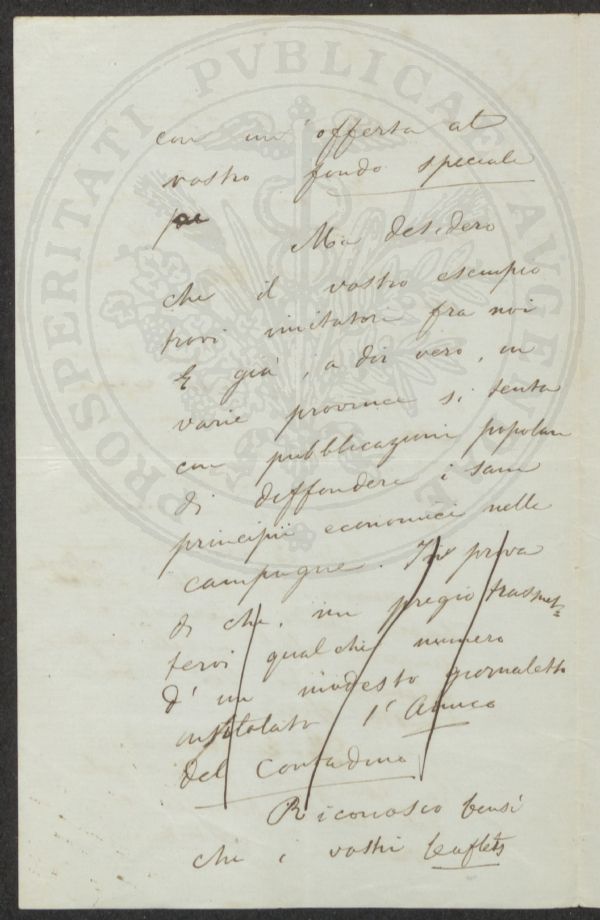 con un' offerta al
vostro fondo speciale
per
Ma desidero
che il vostro esempio
trovi imitatori fra noi
E già, a dir vero, in
varie province si tenta
con pubblicazioni popolari
di diffondere i sani
principii economici nelle
campagne. In prova
di che, mi pregio trasmet=
tervi qualche numero
d' un modesto giornaletto
intitolato l' Amico
del Contadino
Riconosco bensì
che i vostri leaflets
PROSPERITATI PVBLICAE AVGENDAE